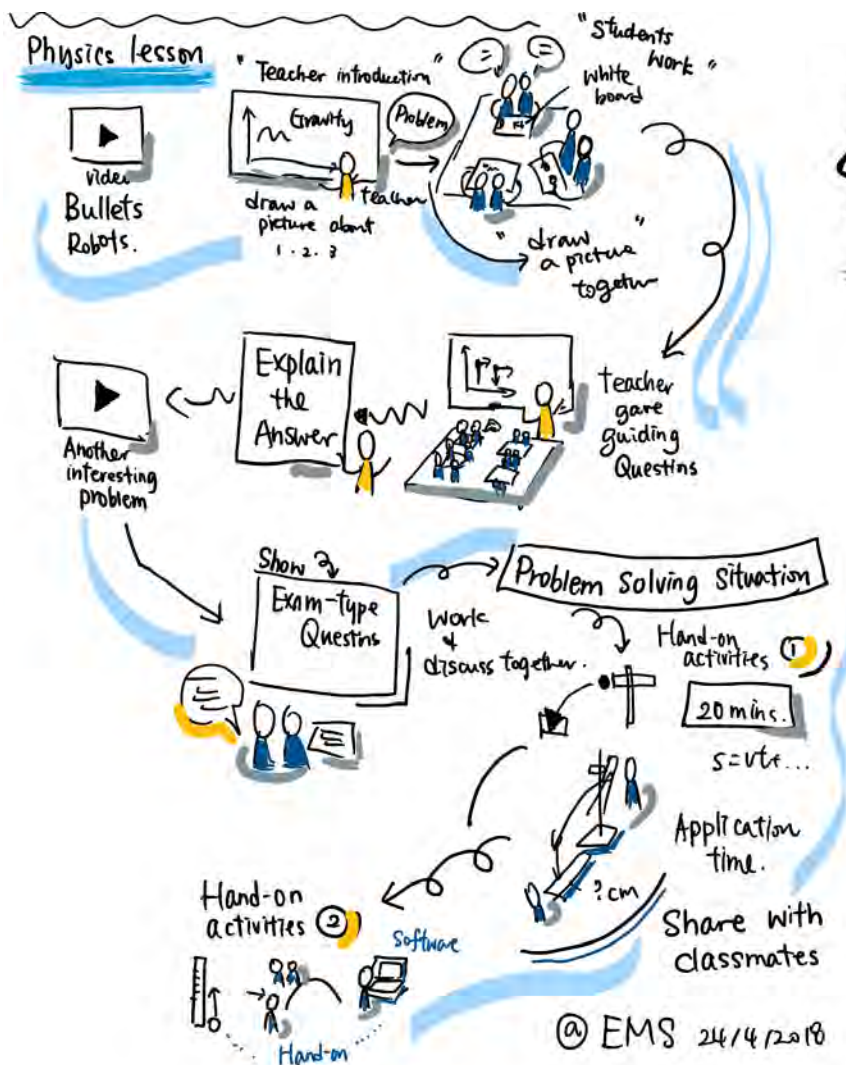 Physics lesson
video
Bullets
Robots.
"Teacher introduction"
Gravity
Problem
teacher
draw a
picture about
1. 2. 3
"Students
work"
white
board
"draw
a picture
together"
teacher
gave
guiding
Questins
Explain
the
Answer
Another
interesting
problem
Show
Exam-type
Questins
Work
&
discuss together.
Problem Solving Situation
Hand-on
activities ①
20 mins.
s=vt+...
Application
time.
? cm
Share with
classmates
Hand-on
activities ②
Software
Hand-on
@ EMS 24/4/2018